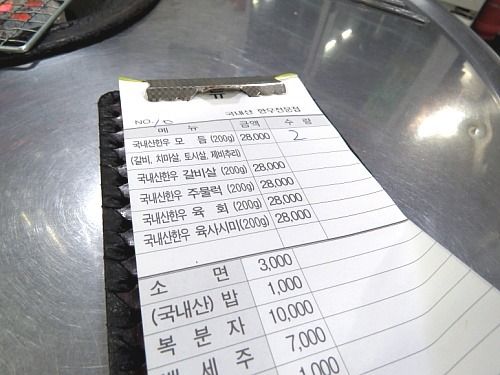 국내산 한우전문점
NO. 10
메 뉴 금액 수 량
국내산한우 모 듬 (200g) 28,000 2
(갈비, 치마살, 토시살, 제비추리)
국내산한우 갈비살 (200g) 28,000
국내산한우 주물럭 (200g) 28,000
국내산한우 육 회 (200g) 28,000
국내산한우 육사시미(200g) 28,000
소 면 3,000
(국내산) 밥 1,000
복 분 자 10,000
백 세 주 7,000
1,000